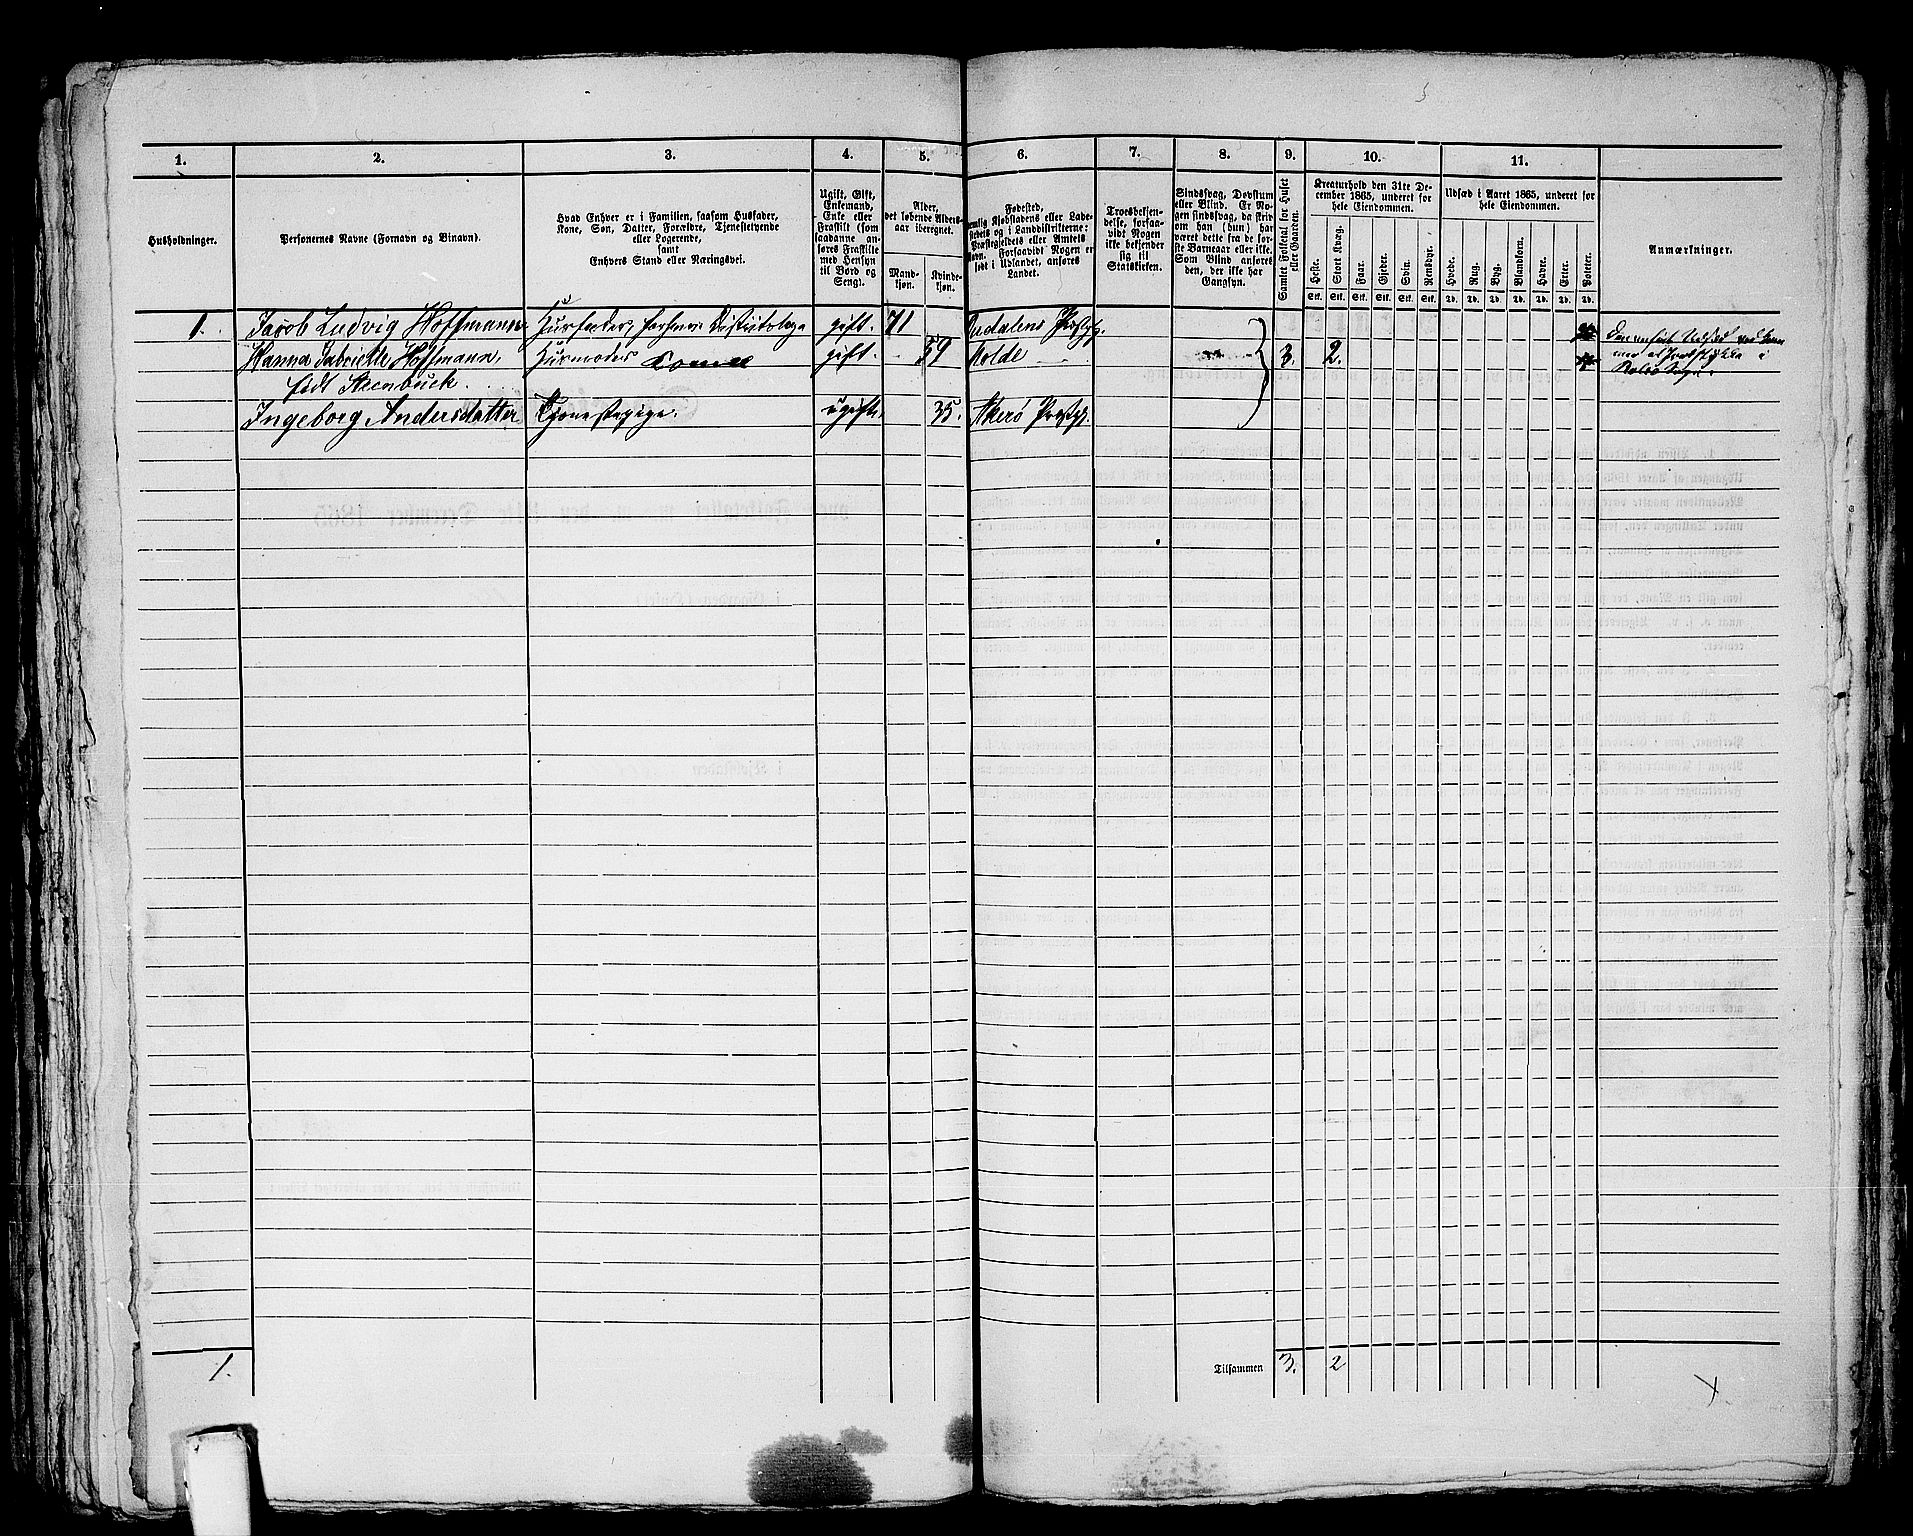 1. 2. 3. 4. 5. 6. 7. 8. 9. 10. 11.
Husholdninger.
Personernes Navne (Fornavn og Binavn).
Hvad Enhver er i Familien, saasom Husfader,
Kone, Søn, Datter, Forældre, Tjenestetyende
eller Logerende,
samt
Enhvers Stand eller Næringsvei.
Ugift, Gift,
Enkemand,
Enke eller
Fraskilt (som
saadanne an-
føres Fraskilte
med Hensyn
til Bord og
Seng).
Alder,
det løbende Alders-
aar iberegnet.
Mand-
kjøn.
Kvinde-
kjøn.
Fødested,
nemlig Kjøbstadens eller Lade-
stedets og i Landdistrikterne:
Præstegjeldets eller Amtets
Navn. Forsaavidt Nogen er
født i Udlandet, anføres
Landet.
Troesbekjen-
delse, forsaa-
vidt Nogen
ikke bekjender
sig til
Statskirken.
Sindssvag, Døvstum
eller Blind. Er No-
gen sindssvag, da skriv
om han (hun) har
været dette fra de før-
ste Barneaar eller ikke.
Som Blind anføres
den, der ikke har
Gangsyn.
Samlet Folketal for Huset
eller Gaarden.
Kreaturhold den 31te De-
cember 1865, underet for
hele Eiendommen.
Heste. Stort Kvæg. Faar. Gjeder. Svin. Rensdyr.
Stk. Stk. Stk. Stk. Stk. Stk.
Udsæd i Aaret 1865, underet for
hele Eiendommen.
Hvede. Rug. Byg. Blandkorn. Havre. Erter. Poteter.
Td. Td. Td. Td. Td. Td. Td.
Anmærkninger.
1. Jacob Ludvig Hoffmann. Husfader, gift. 71 Præstgj.
Hanna Gabrielle Hoffmann, Husmoder Kone gift. 59 Molde 3. 2.
født Steenbuck.
Ingeborg Andersdatter Tjenestepige. ugift. 35. Akerø Præstgj.
1. Tilsammen 3. 2